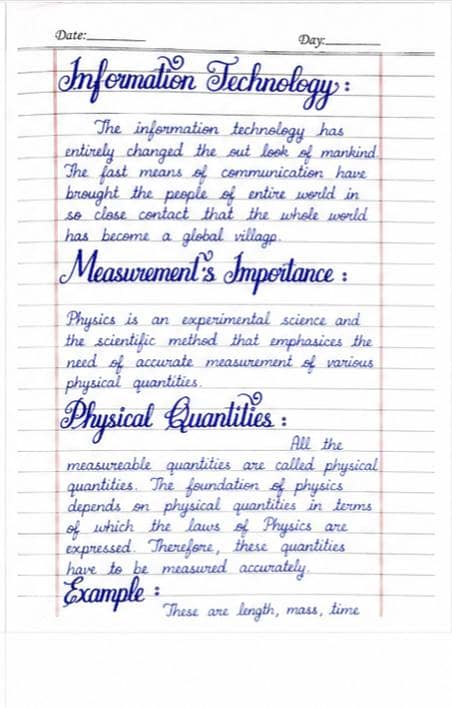 Date:_________
Day:_________
Information Technology:
The information technology has
entirely changed the out look of mankind.
The fast means of communication have
brought the people of entire world in
so close contact that the whole world
has become a global village.
Measurement's Importance:
Physics is an experimental science and
the scientific method that emphasices the
need of accurate measurement of various
physical quantities.
Physical Quantities:
All the
measureable quantities are called physical
quantities. The foundation of physics
depends on physical quantities in terms
of which the laws of Physics are
expressed. Therefore, these quantities
have to be measured accurately.
Example:
These are length, mass, time